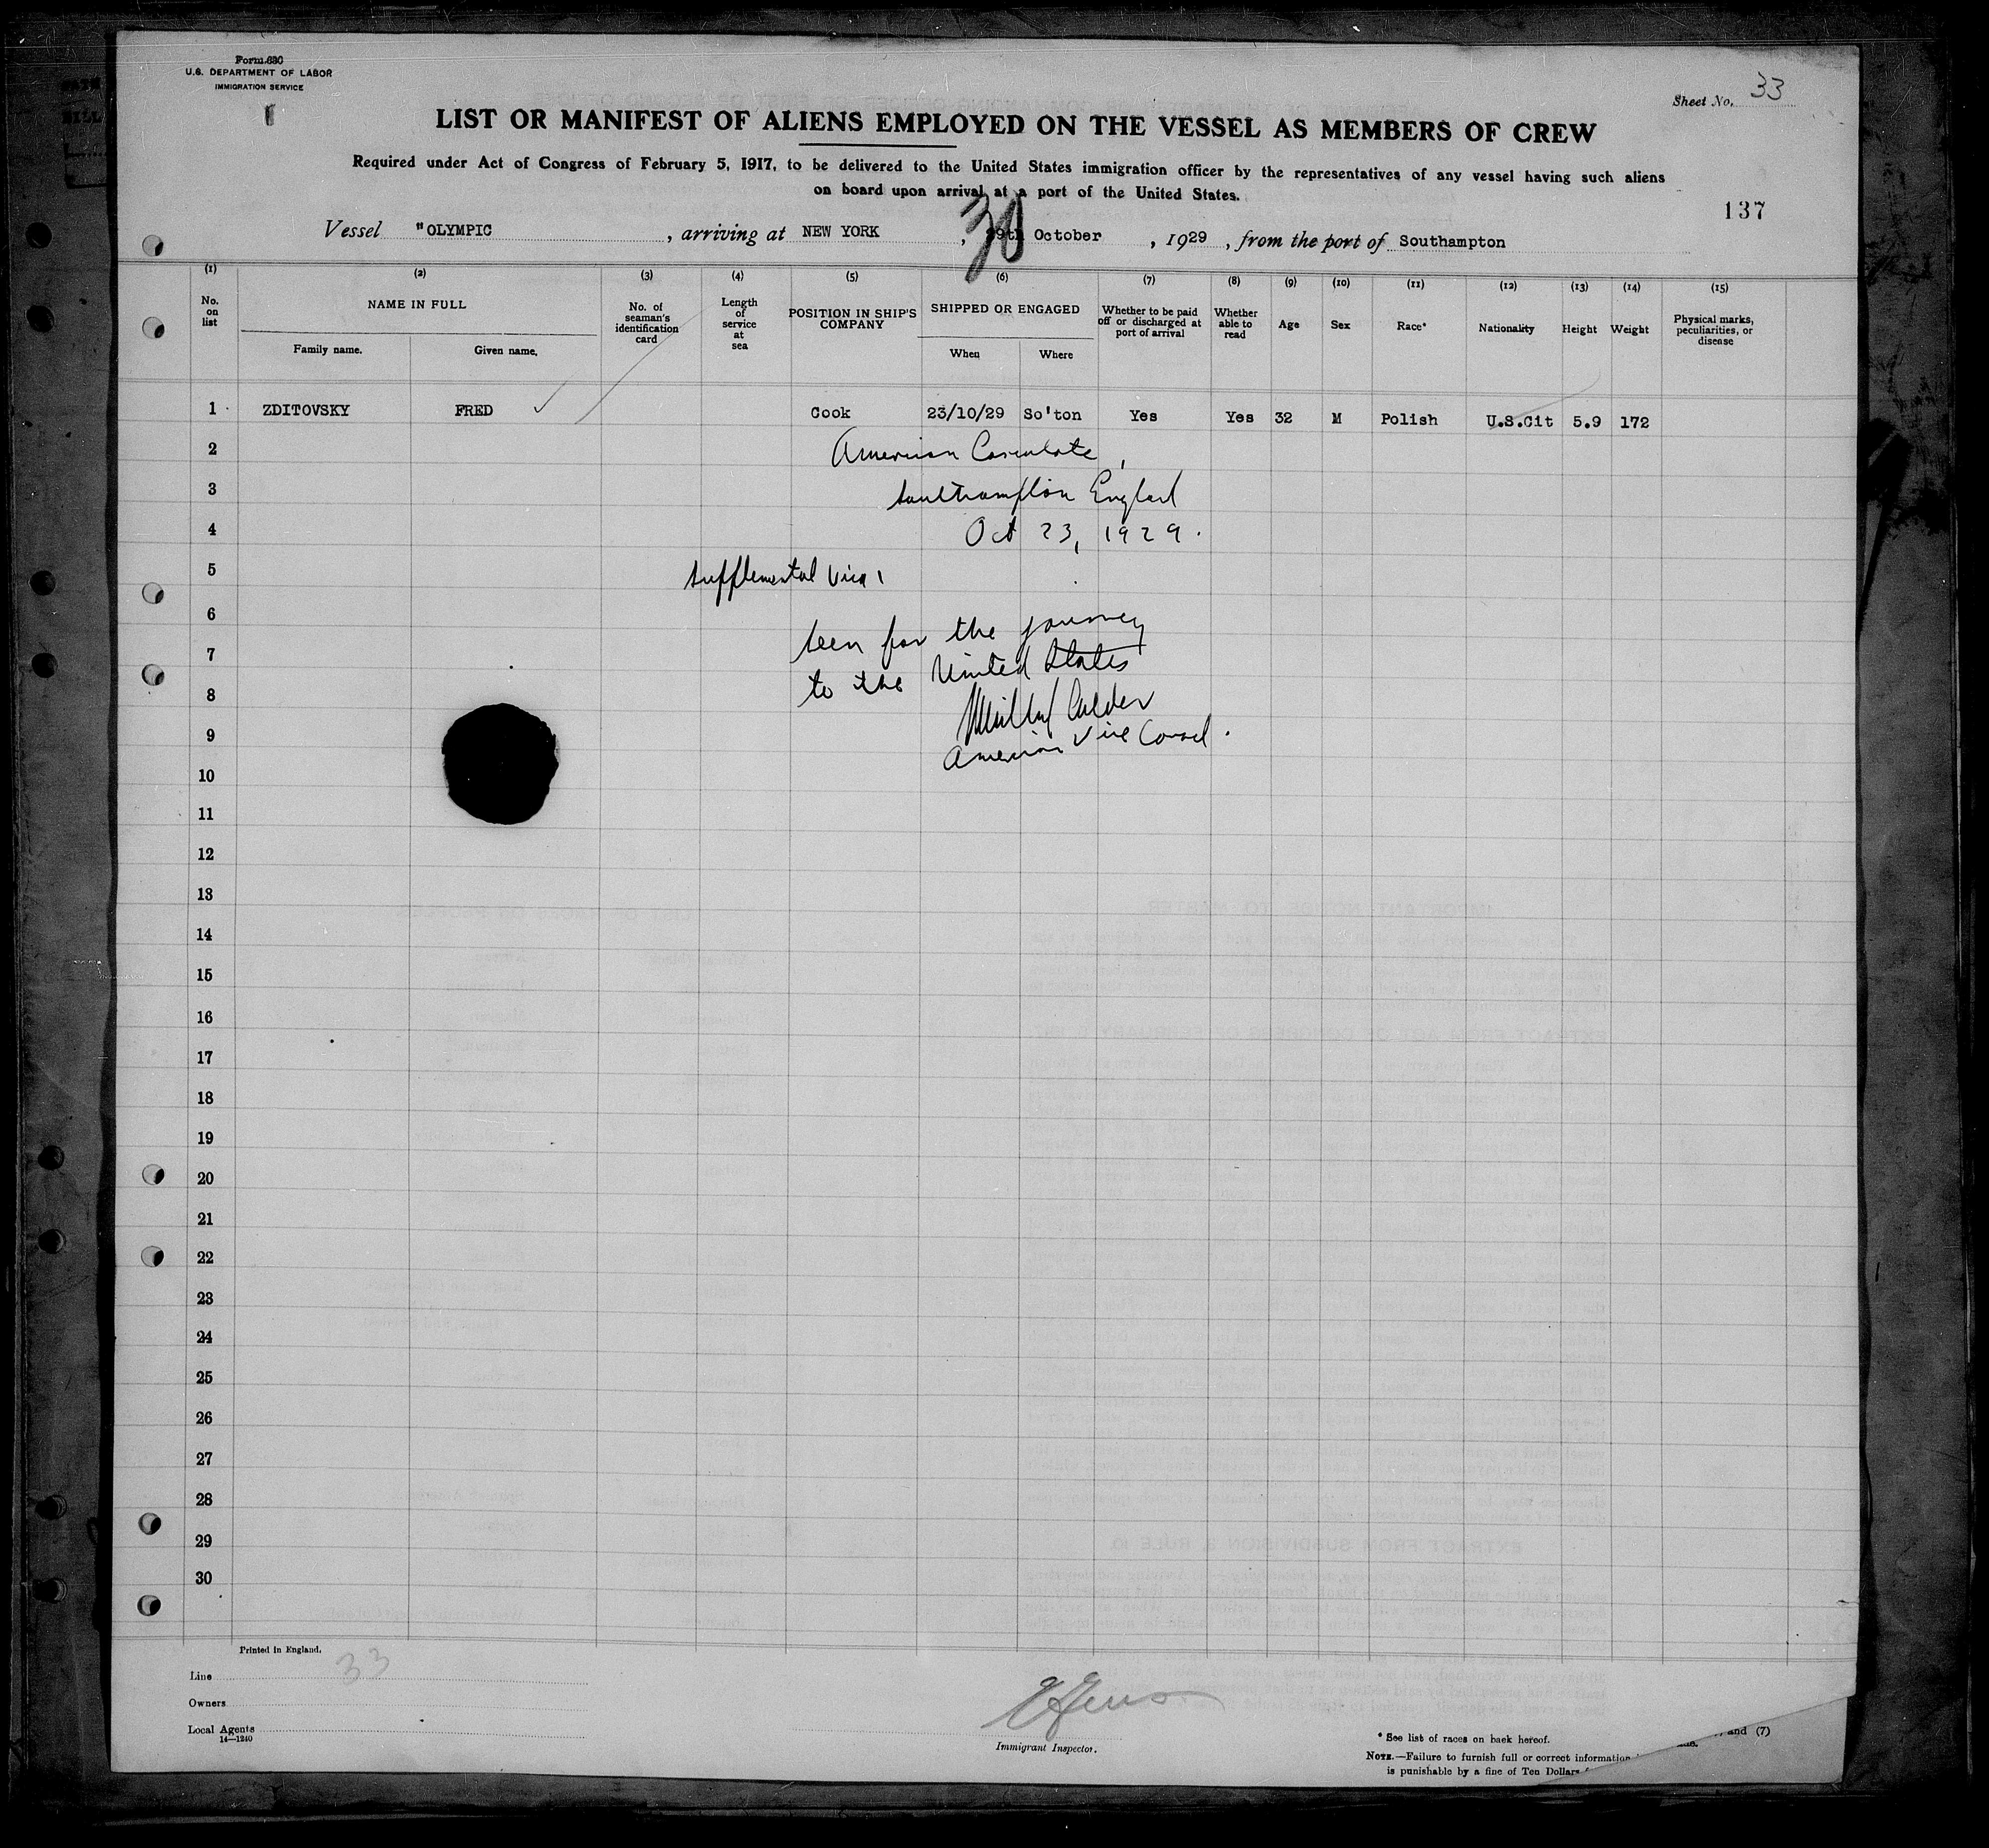 Form 680
U.S. DEPARTMENT OF LABOR
IMMIGRATION SERVICE
Sheet No. 33
LIST OR MANIFEST OF ALIENS EMPLOYED ON THE VESSEL AS MEMBERS OF CREW
Required under Act of Congress of February 5, 1917, to be delivered to the United States immigration officer by the representatives of any vessel having such aliens
on board upon arrival at a port of the United States.
137
Vessel "OLYMPIC , arriving at NEW YORK , 30 October , 1929 , from the port of Southampton
(1) (2) (3) (4) (5) (6) (7) (8) (9) (10) (11) (12) (13) (14) (15)
No. on list
NAME IN FULL
Family name. Given name.
No. of seaman's identification card
Length of service at sea
POSITION IN SHIP'S COMPANY
SHIPPED OR ENGAGED
When Where
Whether to be paid off or discharged at port of arrival
Whether able to read
Age
Sex
Race*
Nationality
Height
Weight
Physical marks, peculiarities, or disease
1 ZDITOVSKY FRED Cook 23/10/29 So'ton Yes Yes 32 M Polish U.S.Cit 5.9 172
2 American Consulate,
3 Southampton England
4 Oct 23, 1929.
5 Supplemental Visa
6 Seen for the journey
7 to the United States
8 Calder
9 American Vice Consul.
10
11
12
13
14
15
16
17
18
19
20
21
22
23
24
25
26
27
28
29
30
Printed in England.
33
Line
Owners
Local Agents
14—1240
Immigrant Inspector.
* See list of races on back hereof.
and (7)
NOTE.—Failure to furnish full or correct information
is punishable by a fine of Ten Dollars